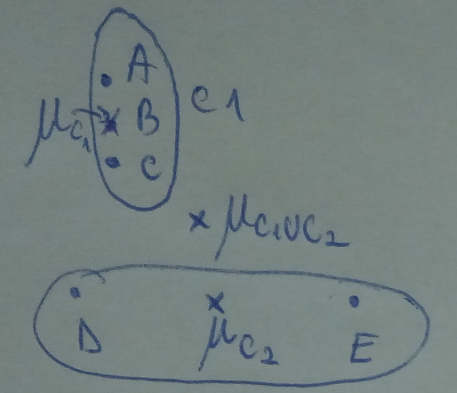 A
μC₁ B C1
C
μC₁∪C₂
D μC₂ E